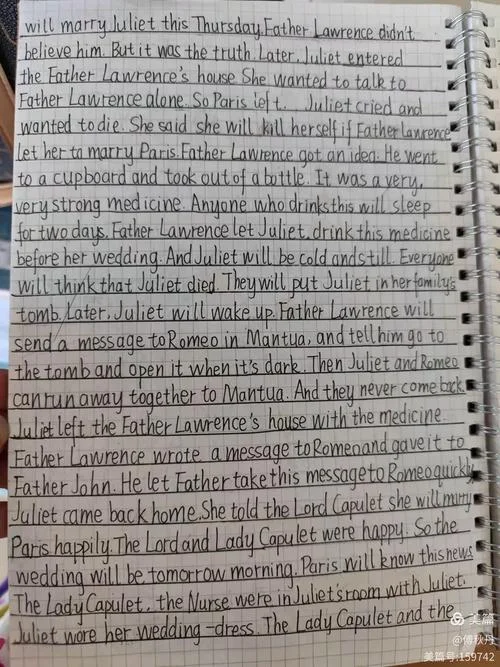 will marry Juliet this Thursday. Father Lawrence didn't
believe him. But it was the truth. Later, Juliet entered
the Father Lawrence's house She wanted to talk to
Father Lawrence alone. So Paris left. Juliet cried and
wanted to die. She said she will kill herself if Father Lawrence
let her to marry Paris. Father Lawrence got an idea. He went
to a cupboard and took out of a bottle. It was a very,
very strong medicine. Anyone who drinks this will sleep
for two days. Father Lawrence let Juliet drink this medicine
before her wedding. And Juliet will be cold and still. Everyone
will think that Juliet died. They will put Juliet in her family's
tomb. Later, Juliet will wake up. Father Lawrence will
send a message to Romeo in Mantua, and tell him go to
the tomb and open it when it's dark. Then Juliet and Romeo
can run away together to Mantua. And they never come back.
Juliet left the Father Lawrence's house with the medicine.
Father Lawrence wrote a message to Romeo and gave it to
Father John. He let Father take this message to Romeo quickly
Juliet came back home. She told the Lord Capulet she will marry
Paris happily. The Lord and Lady Capulet were happy. So the
wedding will be tomorrow morning. Paris will know this news
The Lady Capulet, the Nurse were in Juliet's room with Juliet.
Juliet wore her wedding-dress. The Lady Capulet and the
美篇
@傅秋丹
美篇号:159742